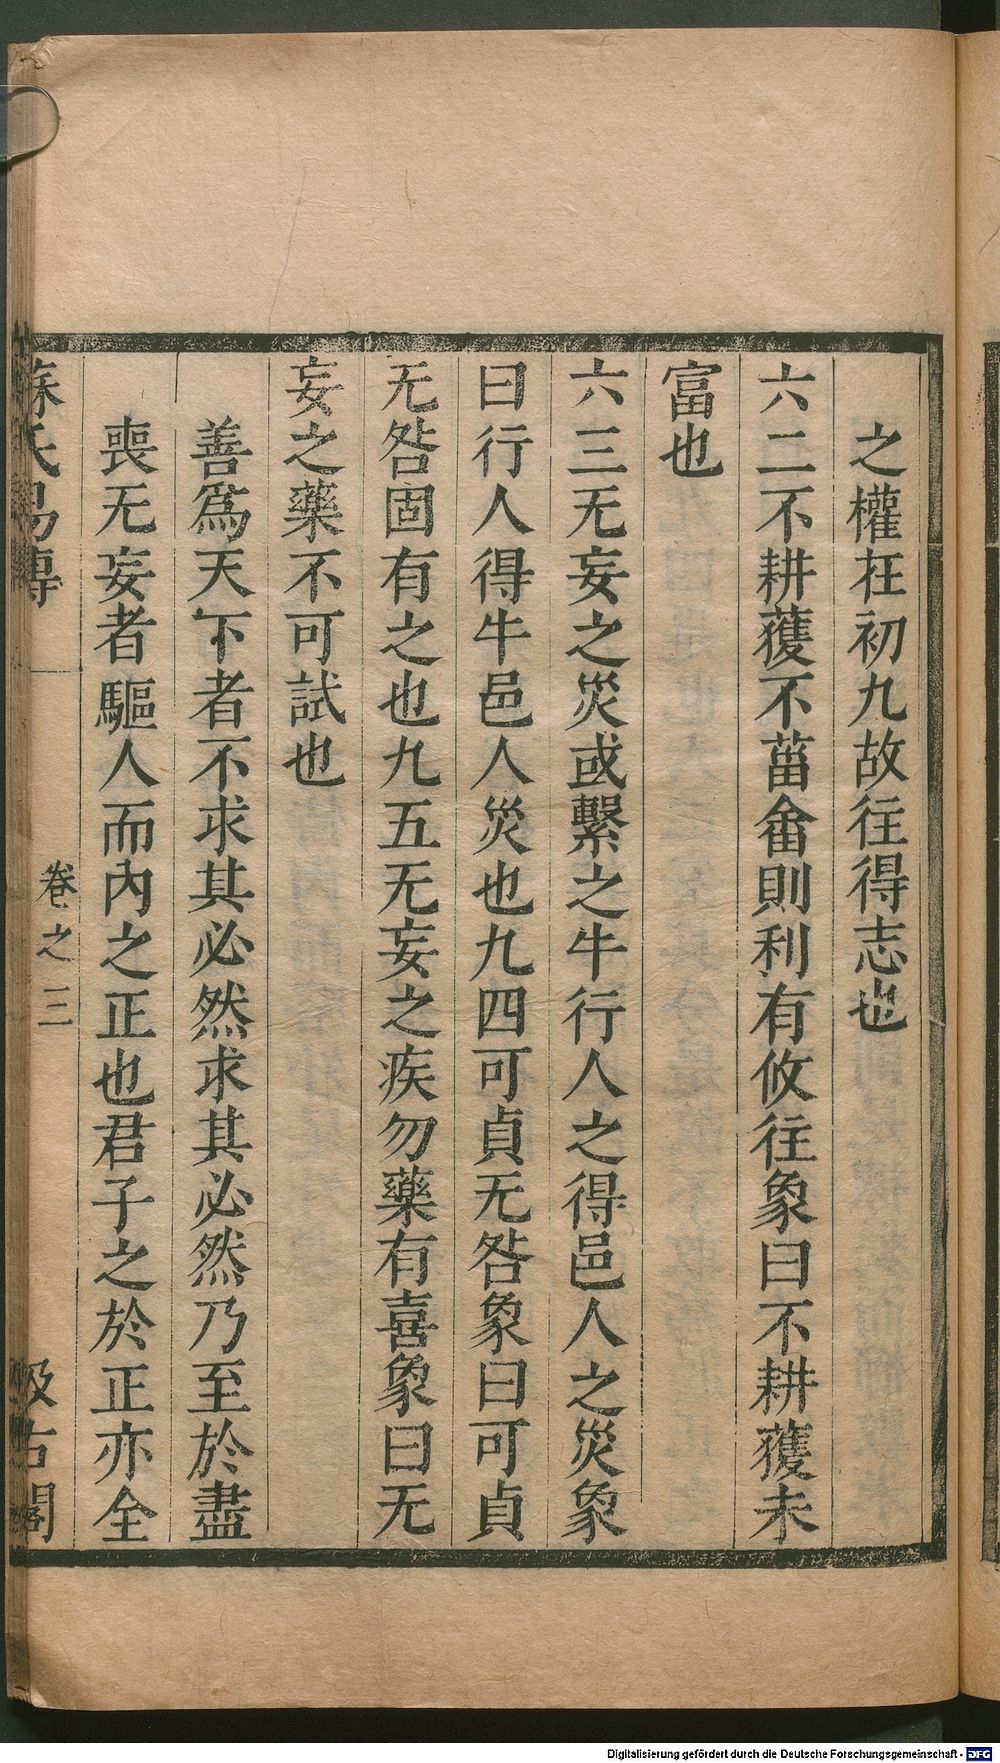 之權在初九故往得志也
六二不耕獲不菑畬則利有攸往象曰不耕獲未
富也
六三无妄之災或繫之牛行人之得邑人之災象
曰行人得牛邑人災也九四可貞无咎象曰可貞
无咎固有之也九五无妄之疾勿藥有喜象曰无
妄之藥不可試也
善爲天下者不求其必然求其必然乃至於盡
喪无妄者驅人而內之正也君子之於正亦全
蘇氏易傳 卷之三 汲古閣
Digitalisierung gefördert durch die Deutsche Forschungsgemeinschaft - DFG